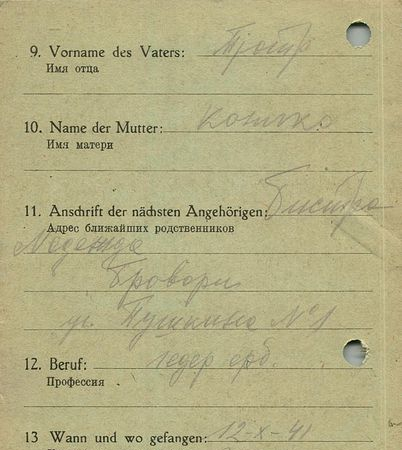 9. Vorname des Vaters:
Имя отца
10. Name der Mutter:
Имя матери
11. Anschrift der nächsten Angehörigen:
Адрес ближайших родственников
Надежда
Бровари
ул. Пушкина №1
12. Beruf:
Профессия
13 Wann und wo gefangen: 12-X-41